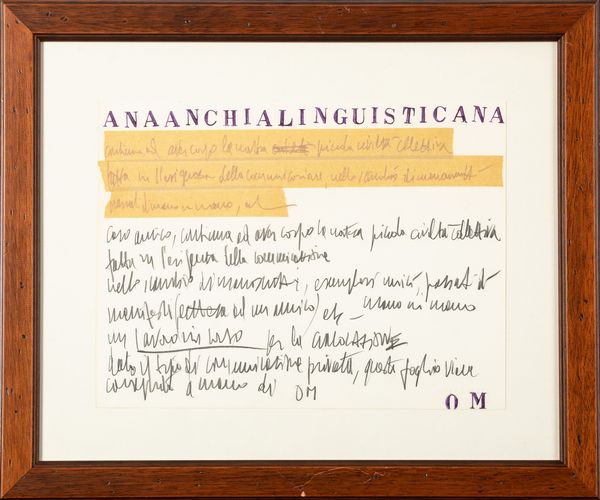 ANAANCHIALINGUISTICANA
continua ad aver corpo la nostra piccola civiltà collettiva
fatta in l'esigenza della comunicazione, nello scambio di manoscritti
mano in mano, et
caro amico, continua ad aver corpo la nostra piccola civiltà collettiva
fatta in l'esigenza della comunicazione
nello scambio di manoscritti, esemplari unici, passati di
manifesti ad un amico) et – mano in mano
un lavoro in corso per la CIRCOLAZIONE
dato il tipo di comunicazione privata, questo foglio viene
consegnato a mano di OM
OM